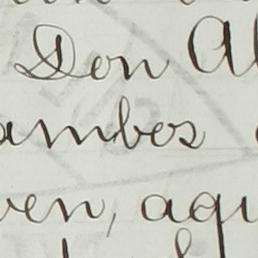 Don Al
ambos
ven, aqu